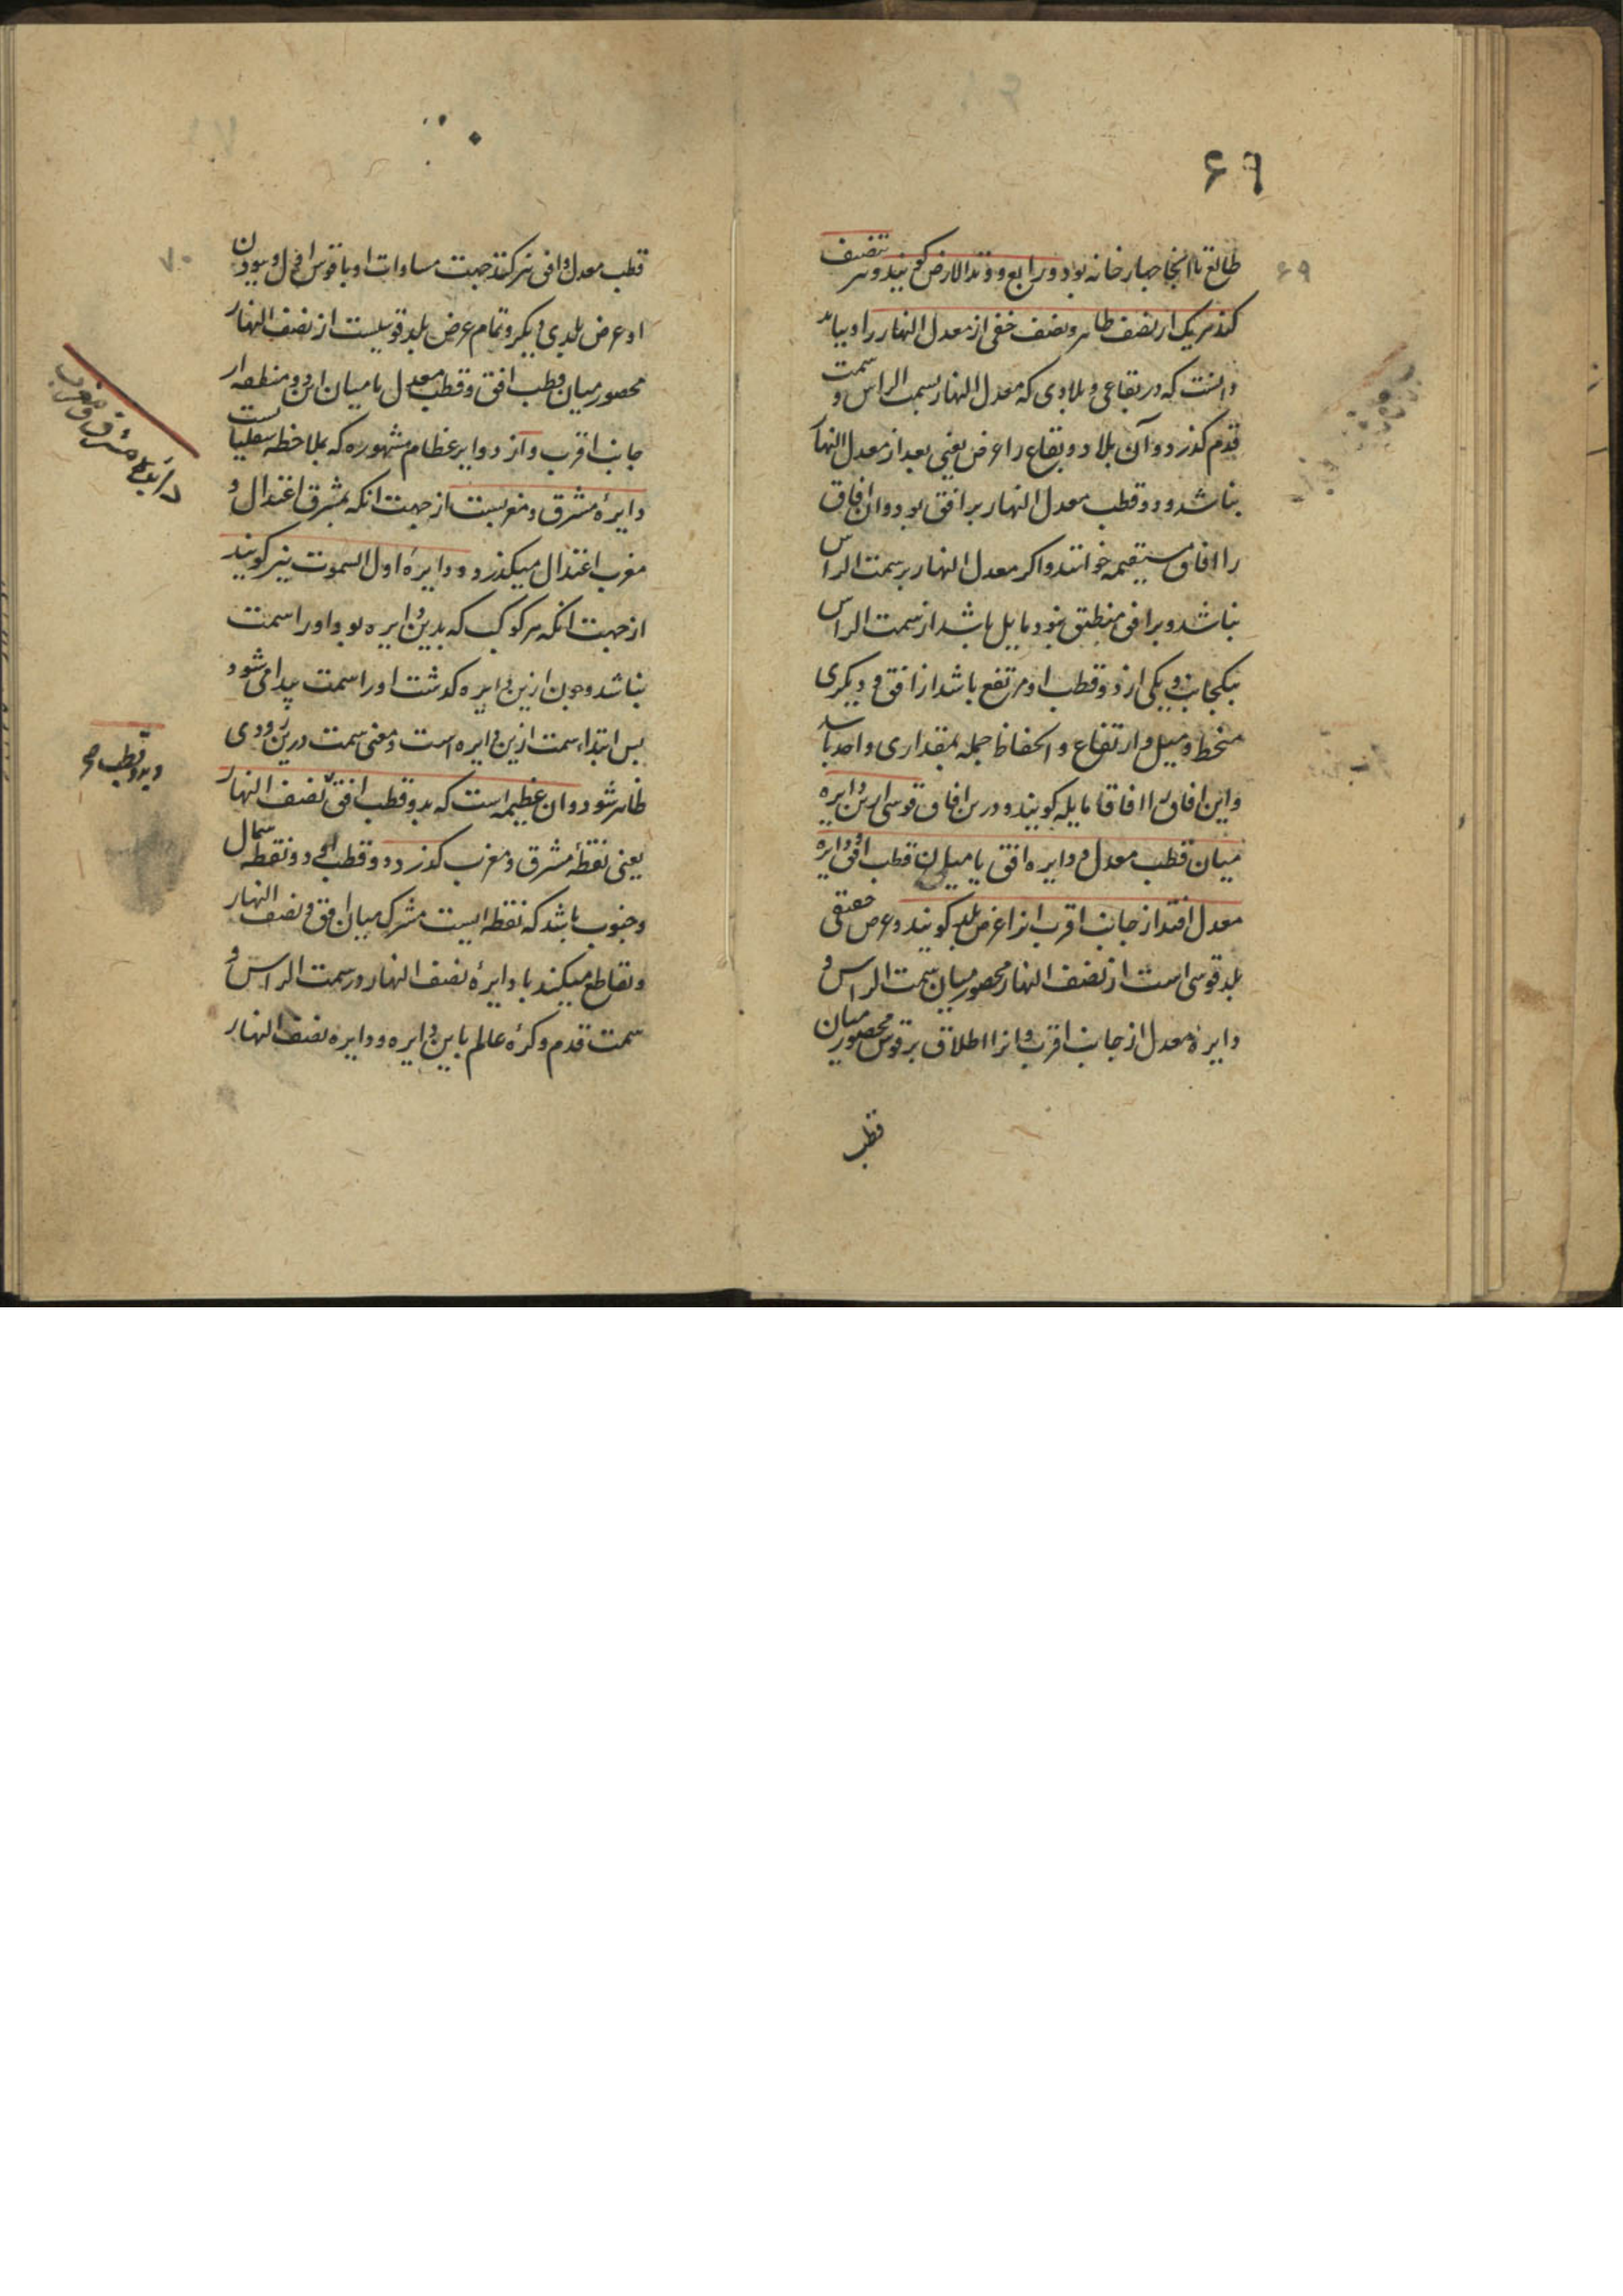 ۶۹
طالع تا انجا چهار خانه بود و رابع و وتد الارض گویند و تنصیف
کند هریک از نصف ظاهر و نصف خفی از معدل النهار را و بباید
دانست که در بقاعی و بلادی که معدل النهار بسمت الراس و سمت
قدم گذرد و آن بلاد و بقاع را عرض یعنی بعد از معدل النهار
نباشد و دو قطب معدل النهار بر افق بود و ان افاق
را افاق مستقیمه خوانند و اکر معدل النهار بر سمت الراس
نباشد و بر افق منطبق نبود مایل باشد از سمت الراس
بیکجانب و یکی از دو قطب او مرتفع باشد از افق و دیکری
منحط و میل و ارتفاع و انحفاظ جمله بمقداری واحد باشد
و این افاق را افاق مایله گویند و درین افاق قوسی ازین دایره
میان قطب معدل و دایره افق یا میان قطب افق و دایره
معدل افتد از جانب اقرب انرا عرض بلد کویند و عرض حقیقی
بلد قوسی است از نصف النهار محصور میان سمت الراس و
دایرهٔ معدل از جانب اقرب و انرا اطلاق بر قوس محصور میان
قطب
۷۰
قطب معدل و افق نیز کنند جهت مساوات او با قوس اول و بودن
او عرض بلدی دیکر و تمام عرض بلد قوسیست از نصف النهار
محصور میان قطب افق و قطب معدل یا میان این دو منطقه از
جانب اقرب و از دوایر عظام مشهوره که بملاحظه سفلیات است
دایرهٔ مشرق و مغربست از جهت انکه بمشرق اعتدال و
مغرب اعتدال میکذرد و دایرهٔ اول السموت نیز کویند
از جهت انکه هر کوکب که بدین دایره بود او را سمت
نباشد و چون ازین دایره کذشت او را سمت پیدا می شود
پس ابتداء سمت ازین دایره است و معنی سمت درین زودی
ظاهر شود و ان عظیمه است که بدو قطب افق و نصف النهار
یعنی نقطهٔ مشرق و مغرب کذرد و دو قطب او دو نقطه شمال
و جنوب باشد که نقطه ایست مشترک میان افق و نصف النهار
و تقاطع میکند با دایرهٔ نصف النهار در سمت الراس و
سمت قدم و کرهٔ عالم باین دایره و دایره نصف النهار
دایرهٔ مشرق و مغرب